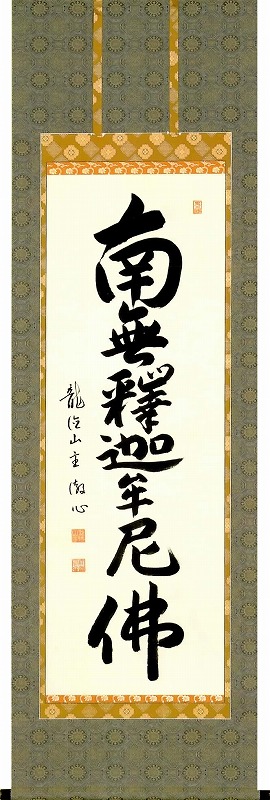 南無釋迦牟尼佛
龍泣山主澂心